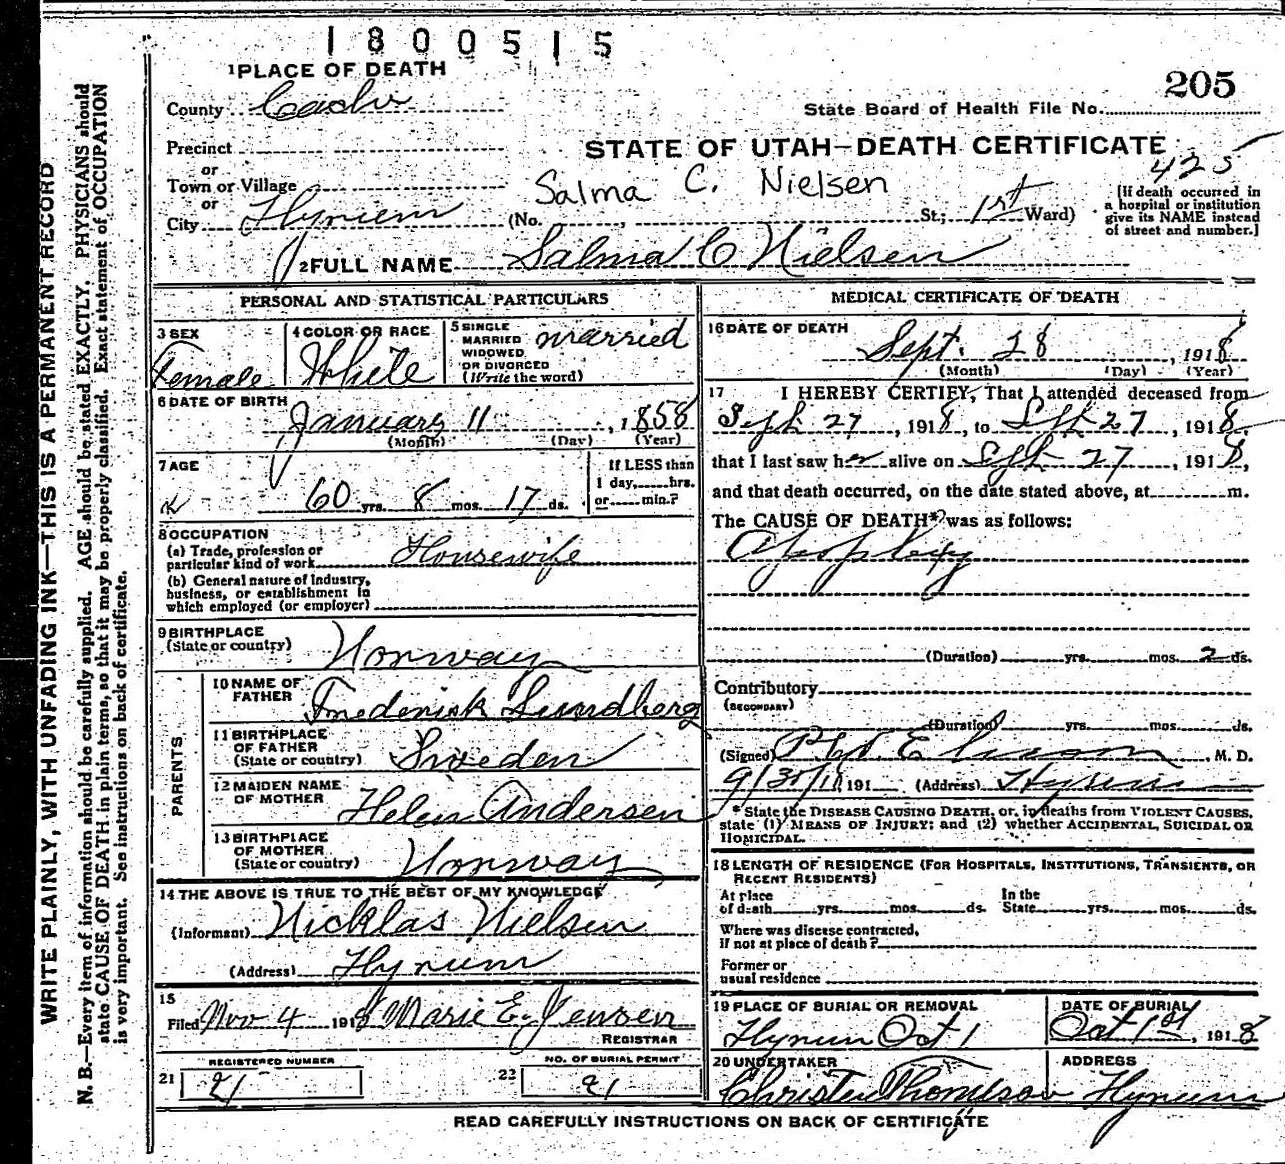 1800515
1 PLACE OF DEATH
205
County Cache
State Board of Health File No.
Precinct
STATE OF UTAH—DEATH CERTIFICATE
or
425
Town or Village
Salma C. Nielsen
or
City Hyrum (No. St; 1st Ward)
[If death occurred in
a hospital or institution
give its NAME instead
of street and number.]
2 FULL NAME Salma C Nielsen
PERSONAL AND STATISTICAL PARTICULARS
3 SEX
Female
4 COLOR OR RACE
White
5 SINGLE
MARRIED
WIDOWED
OR DIVORCED
(Write the word)
married
6 DATE OF BIRTH
January 11, 1858
(Month) (Day) (Year)
7 AGE
60 yrs. 8 mos. 17 ds.
If LESS than
1 day, hrs.
or min.?
8 OCCUPATION
(a) Trade, profession or
particular kind of work Housewife
(b) General nature of industry,
business, or establishment in
which employed (or employer)
9 BIRTHPLACE
(State or country) Norway
PARENTS
10 NAME OF
FATHER Frederick Lundberg
11 BIRTHPLACE
OF FATHER
(State or country) Sweden
12 MAIDEN NAME
OF MOTHER Helen Andersen
13 BIRTHPLACE
OF MOTHER
(State or country) Norway
14 THE ABOVE IS TRUE TO THE BEST OF MY KNOWLEDGE
(Informant) Nicklas Nielsen
(Address) Hyrum
15
Filed Nov 4 1918 Marie E. Jensen
REGISTRAR
REGISTERED NUMBER
21 21
NO. OF BURIAL PERMIT
22 21
MEDICAL CERTIFICATE OF DEATH
16 DATE OF DEATH
Sept. 28, 1918
(Month) (Day) (Year)
17 I HEREBY CERTIFY, That I attended deceased from
Sept 27, 1918, to Sept 27, 1918,
that I last saw her alive on Sept 27, 1918,
and that death occurred, on the date stated above, at m.
The CAUSE OF DEATH* was as follows:
Apoplexy
(Duration) yrs. mos. 2 ds.
Contributory
(SECONDARY)
(Duration) yrs. mos. ds.
(Signed) M. D.
191 (Address) Hyrum
* State the DISEASE CAUSING DEATH, or, in deaths from VIOLENT CAUSES,
state (1) MEANS OF INJURY; and (2) whether ACCIDENTAL, SUICIDAL OR
HOMICIDAL.
18 LENGTH OF RESIDENCE (FOR HOSPITALS, INSTITUTIONS, TRANSIENTS, OR
RECENT RESIDENTS)
At place
of death yrs. mos. ds.
In the
State yrs. mos. ds.
Where was disease contracted,
if not at place of death?
Former or
usual residence
19 PLACE OF BURIAL OR REMOVAL
Hyrum Oct 1
DATE OF BURIAL
Oct 1st, 1918
20 UNDERTAKER
Christen Thompson
ADDRESS
Hyrum
READ CAREFULLY INSTRUCTIONS ON BACK OF CERTIFICATE
WRITE PLAINLY, WITH UNFADING INK—THIS IS A PERMANENT RECORD
N. B.—Every item of information should be carefully supplied. AGE should be stated EXACTLY. PHYSICIANS should
state CAUSE OF DEATH in plain terms, so that it may be properly classified. Exact statement of OCCUPATION
is very important. See instructions on back of certificate.